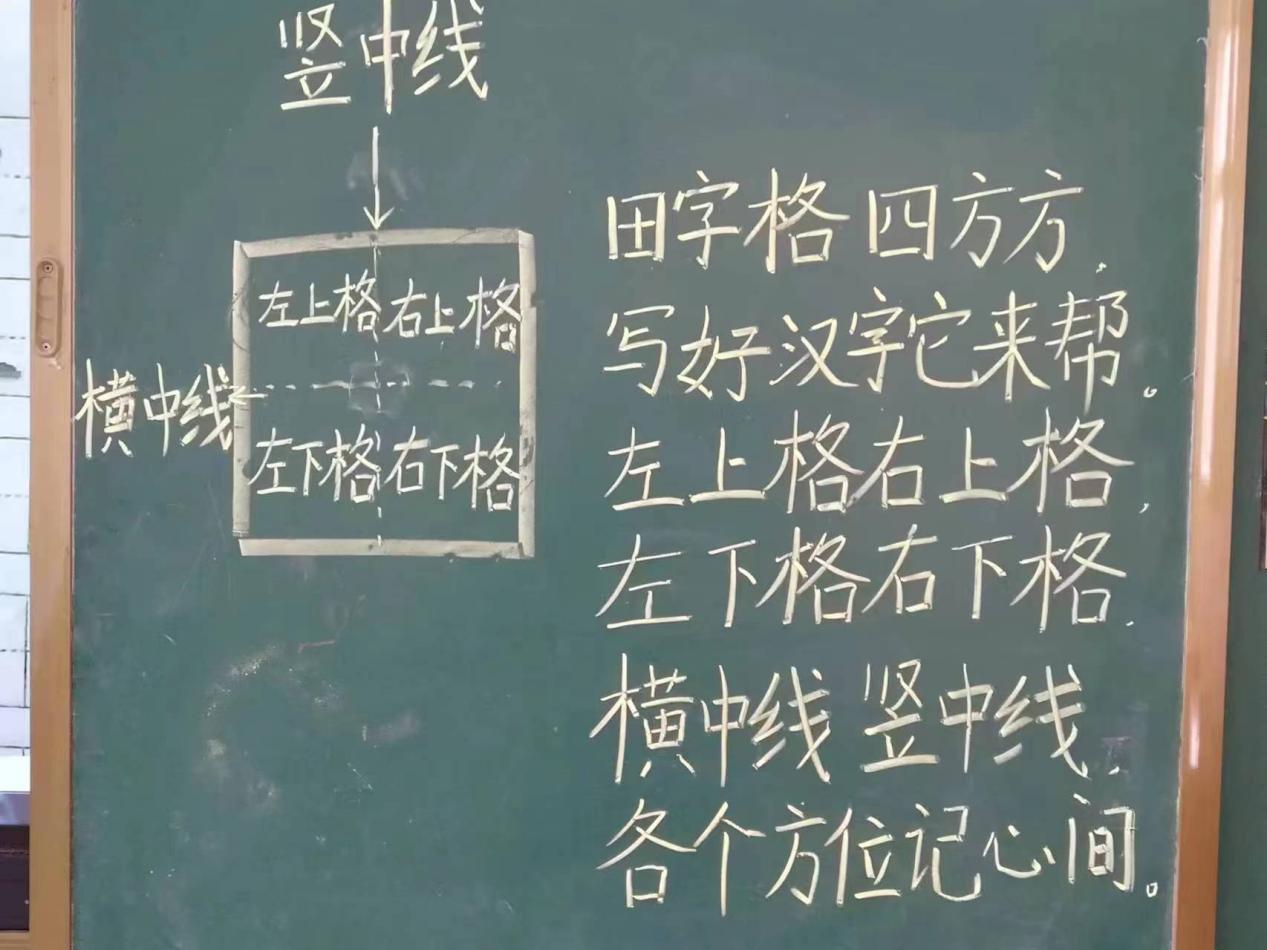 竖中线
左上格 右上格
横中线
左下格 右下格
田字格 四方方，
写好汉字它来帮。
左上格右上格，
左下格右下格，
横中线 竖中线，
各个方位记心间。